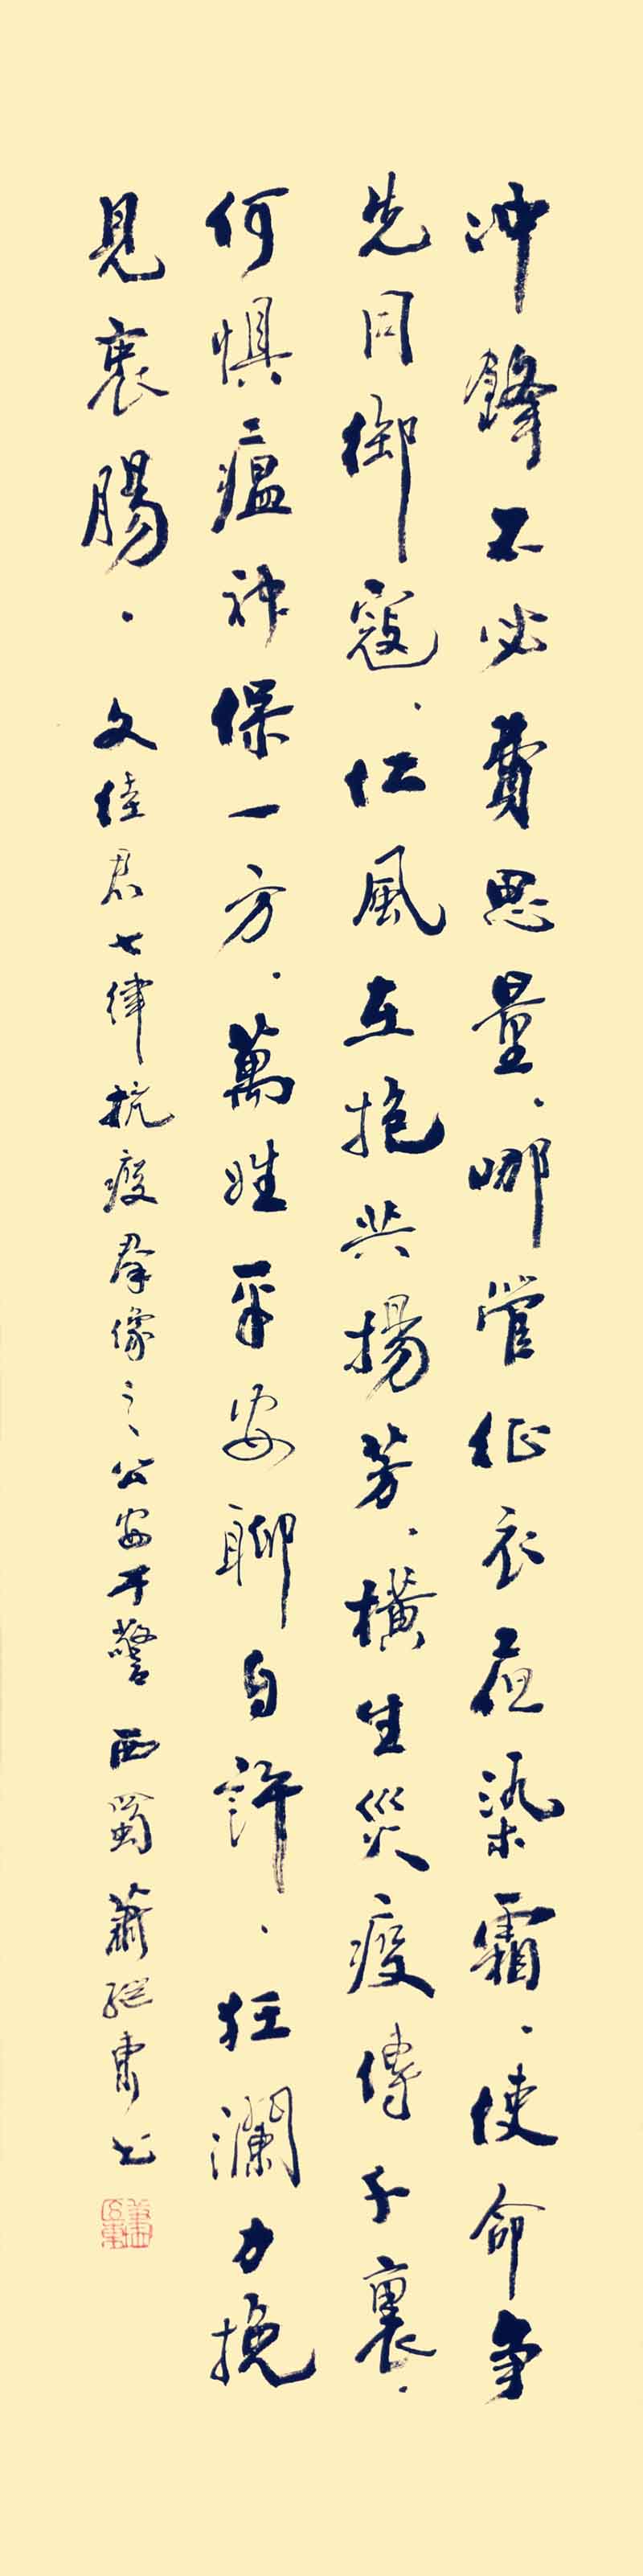 冲鋒不必費思量．哪管征衣夜染霜．使命争
先同御寇．仁風在抱共揚芳．橫生災疫傳千裏．
何惧瘟神保一方．萬姓平安聊自許．狂瀾力挽
見衷腸．文佳君七律抗疫群像之公安干警 西蜀蕭継書